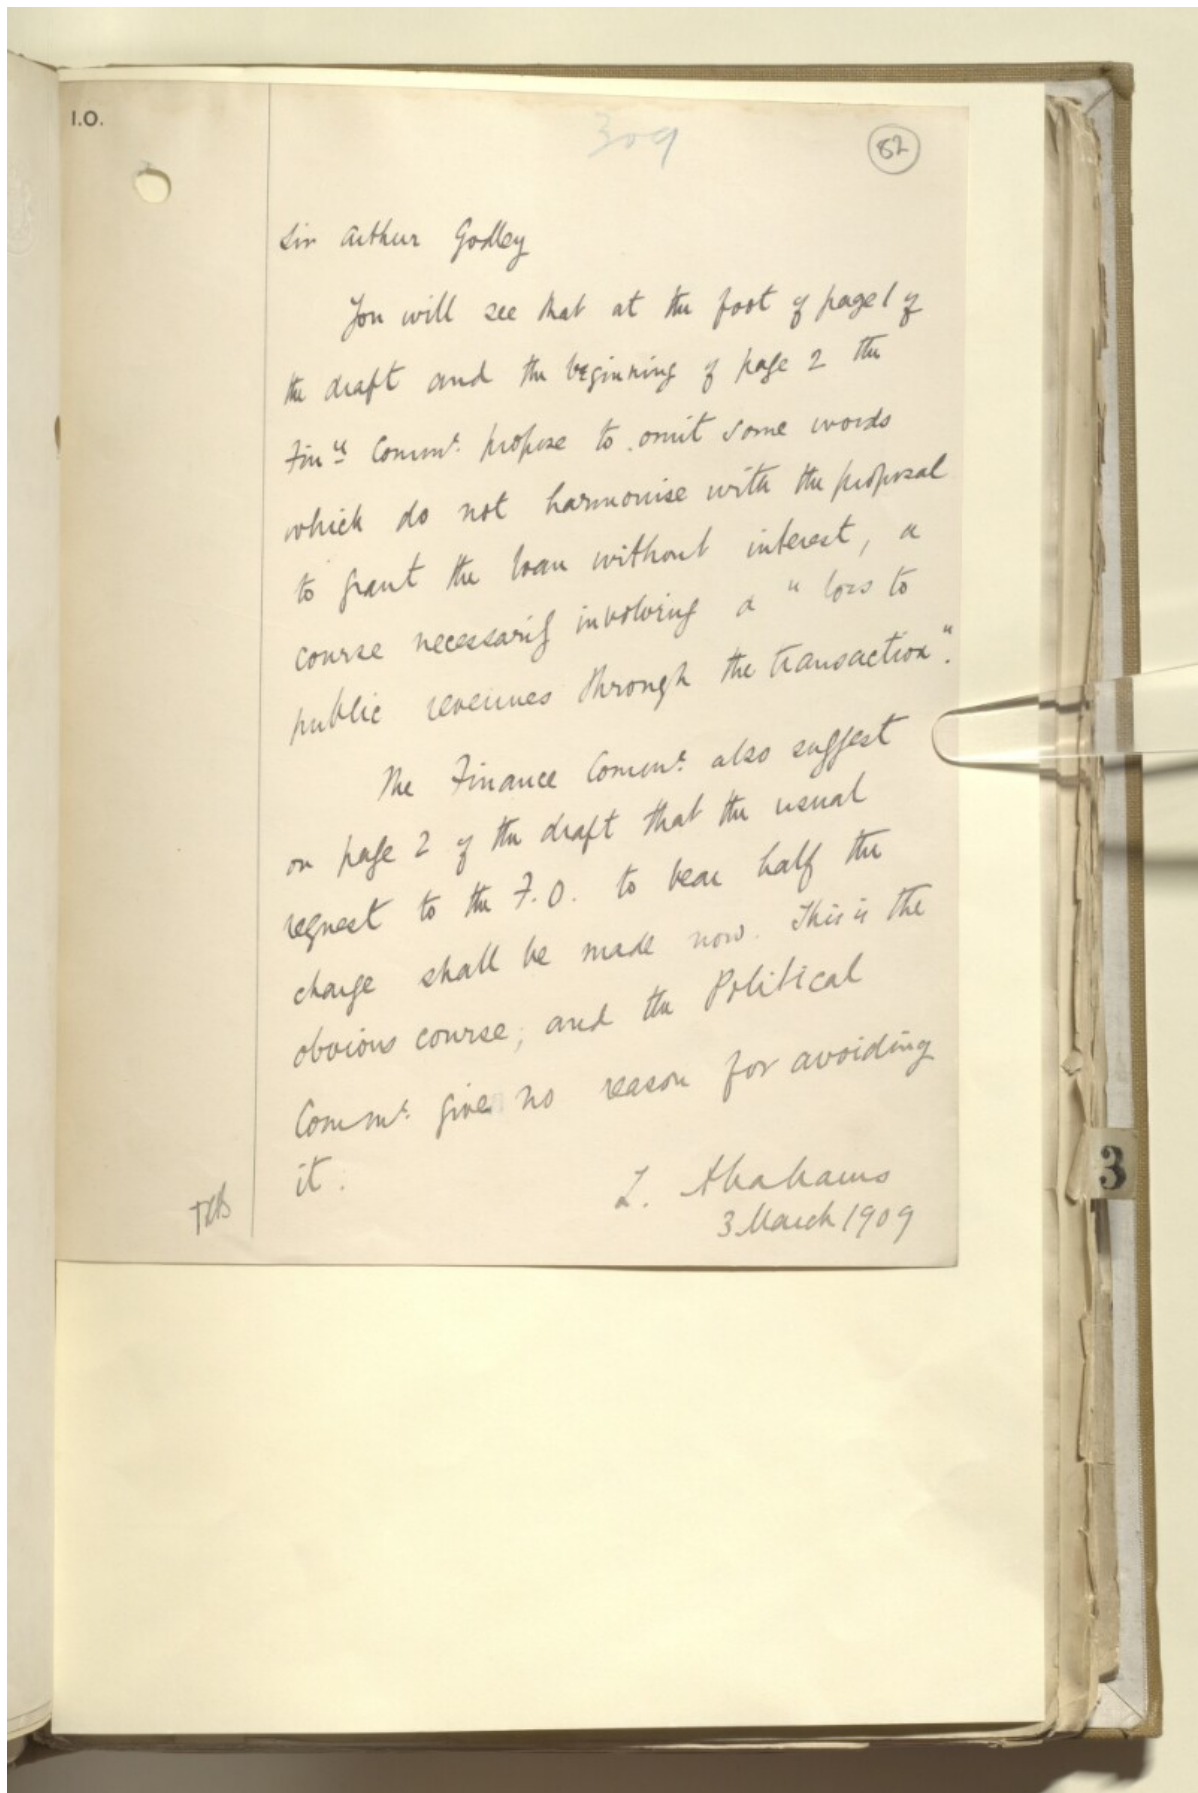 I.O.
309
82
Sir Arthur Godley
You will see that at the foot of page 1 of
the draft and the beginning of page 2 the
Fin<sup>ce</sup> Comm<sup>ee</sup> propose to omit some words
which do not harmonise with the proposal
to grant the loan without interest, a
course necessarily involving a "loss to
public revenues through the transaction".
The Finance Comm<sup>ee</sup> also suggest
on page 2 of the draft that the usual
request to the F.O. to bear half the
charge shall be made now. This is the
obvious course, and the Political
Comm<sup>ee</sup> give no reason for avoiding
it.
L. Abrahams
3 March 1909
3